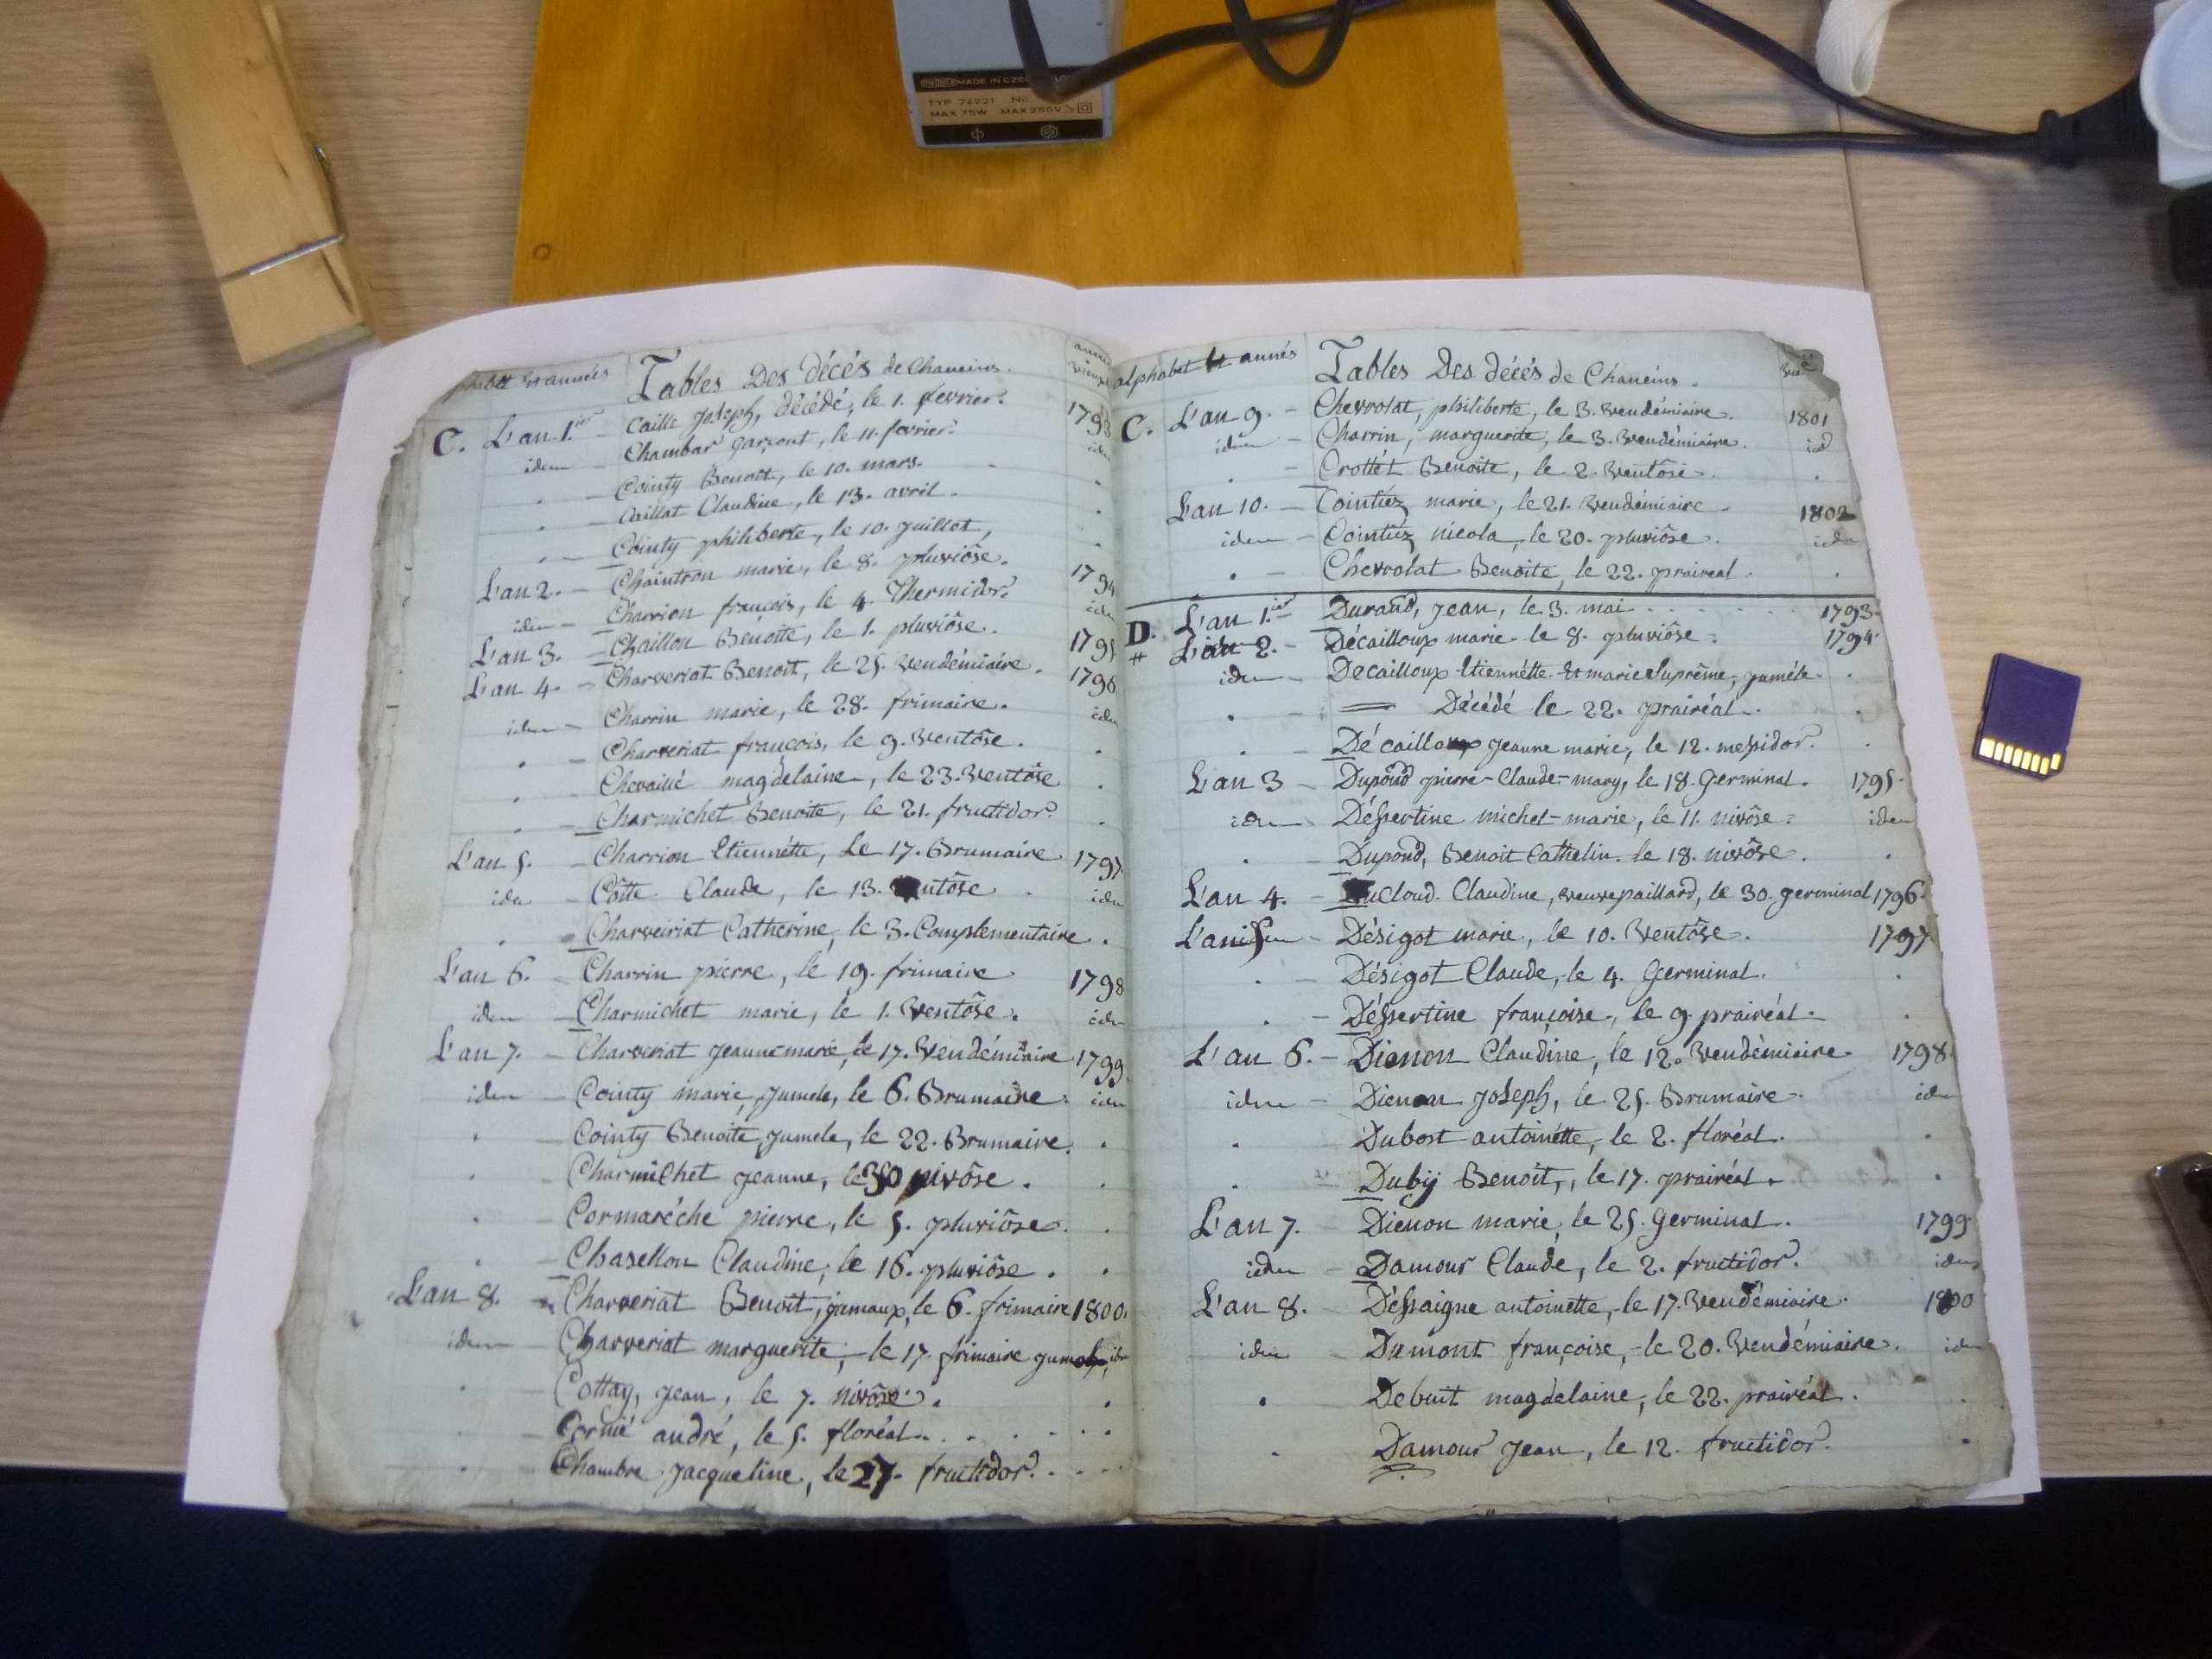 MADE IN CZE
TYP 74221 No.
MAX 75W MAX 250V
alphabet et années Tables Des décés de Chaneins.
C. L'an 1.ier - Caille Joseph, décédé, le 1. fevrier. 1793
idem - Chambar garçont, le 11. fevrier. idem
. - Cointy Benoit, le 10. mars. .
. - Caillat Claudine, le 13. avril. .
. - Cointy philiberte, le 10. juillet, .
L'an 2. - Chaintron marie, le 8. pluviôse. 1794
idem - Charrion françois, le 4. Thermidor. idem
L'an 3. - Chaillon Benoite, le 1. pluviôse. 1795
L'an 4. - Charveriat Benoit, le 25. Vendémiaire. 1796
idem - Charrin marie, le 28. frimaire. idem
. - Charveriat françois, le 9. Ventôse. .
. - Chevaillé magdelaine, le 23. Ventôse .
. - Charmichet Benoite, le 21. fructidor. .
L'an 5. - Charrion Etiennétte, Le 17. Brumaire 1797
idem - Côtte Claude, le 13. ventôse . idem
. - Charveiriat Catherine, le 3. Complementaire .
L'an 6. - Charrin pierre, le 19. frimaire 1798
idem - Charmichet marie, le 1. Ventôse. idem
L'an 7. - Charveriat jeanne marie, le 17. Vendémiaire 1799
idem - Cointy marie, jumele, le 6. Brumaire. idem
. - Cointy Benoite, jumele, le 22. Brumaire. .
. - Charmilhet jeanne, le 30 nivôse. .
. - Cormaréche pierre, le 5. pluviôse. .
. - Chasellon Claudine, le 16. pluviôse. .
L'an 8. - Charveriat Benoit, jumaux, le 6. frimaire 1800.
idem - Charveriat marguerite, - le 17. frimaire
. - Cottay, jean, le 7. nivôse. .
. - Cornié andré, le 5. floréal. . . . . .
. - Chambre jacqueline, le 27. fructidor. . . .
alphabet et annés Tables Des décés de Chaneins.
C. L'an 9. - Chevrolat, philiberte, le 3. Vendémiaire. 1801
idem - Charrin, marguerite, le 3. Vendémiaire. id
. - Crottét Benoite, le 2. Ventôse. .
L'an 10. - Cointiez marie, le 21. Vendémiaire . 1802
idem - Cointiez nicola, le 20. pluviôse. idem
. - Chevrolat Benoite, le 22. prairéal. .
D. L'an 1.ier - Durand, jean, le 3. mai . . . . . . 1793.
L'an 2. - Décailloux marie - le 8. pluviôse. 1794.
idem - Decailloux Etiennétte Et marie Suprême, juméle. .
. - = Décédé le 22. prairéal. .
. - Décailloux jeanne marie, le 12. messidor. .
L'an 3 - Dupond pierre-Claude-mary, le 18. Germinal. 1795.
idem - Déssertine michel-marie, le 11. nivôse. idem
. - Dupond, Benoit Cathelin. le 18. nivôse. .
L'an 4. - Ducloud. Claudine, veuve paillard, le 30. germinal 1796.
L'an 5 - Désigot marie, le 10. Ventôse. 1797
. - Désigot Claude, le 4. Germinal. .
. - Déssertine françoise, le 9. prairéal. .
L'an 6. - Dienon Claudine, le 12. Vendémiaire. 1798
idem - Dienon joseph, le 25. Brumaire. idem
. Dubost antoinétte, le 2. floréal. .
. - Dubij Benoit, le 17. prairéal. .
L'an 7. - Dienon marie, le 25. Germinal. 1799
idem - Damour Claude, le 2. fructidor. idem
L'an 8. - Déssaigne antoinette, le 17. Vendémiaire. 1800
idem - Dumont françoise, - le 20. Vendémiaire. idem
. Debuit magdelaine, le 22. prairéal. .
. Damour jean, le 12. fructidor. .